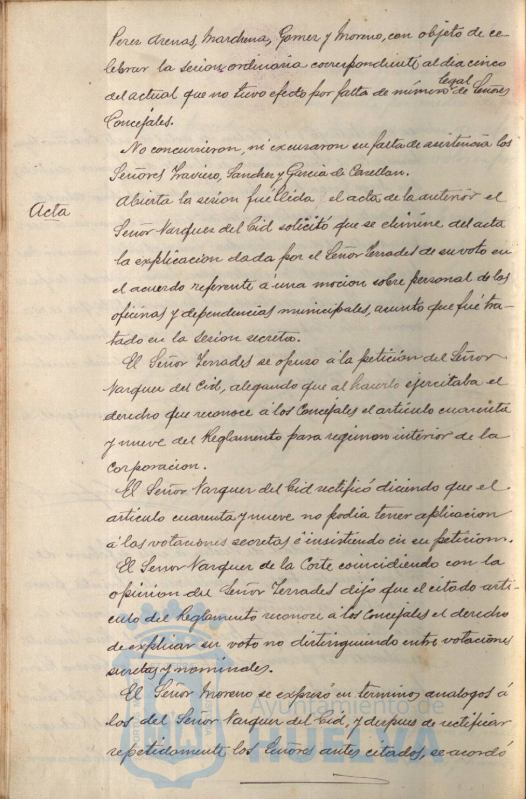 Perez Arenas, Marchena, Gomez y Moreno, con objeto de ce-
lebrar la sesion ordinaria correspondiente al dia cinco
del actual que no tuvo efecto por falta de número legal de Señores
Concejales.
No concurrieron, ni excusaron su falta de asistencia los
Señores Traviero, Sanchez y Garcia de Casellan.
Acta
Abierta la sesion fué lleida el acta de la anterior el
Señor Vazquez del Cid solicitó que se elimine del acta
la explicacion dada por el Señor Terrades de su voto en
el acuerdo referente á una mocion sobre personal de las
oficinas y dependencias municipales, asunto que fué tra-
tado en la sesion secreta.
El Señor Terrades se opuso á la peticion del Señor
Vazquez del Cid, alegando que al hacerlo ejercitaba el
derecho que reconoce á los Concejales el articulo cuarenta
y nueve del Reglamento para regimen interior de la
Corporacion.
El Señor Vazquez del Cid rectificó diciendo que el
articulo cuarenta y nueve no podia tener aplicacion
á las votaciones secretas é insistiendo en su peticion.
El Señor Vazquez de la Corte coincidiendo con la
opinion del Señor Terrades dijo que el citado arti-
culo del Reglamento reconoce á los Concejales el derecho
de explicar su voto no distinguiendo entre votaciones
secretas y nominales.
El Señor Moreno se expresó en terminos analogos á
los del Señor Vazquez del Cid, y despues de rectificar
repetidamente los Señores antes citados, se acordó
Ayuntamiento de
HUELVA